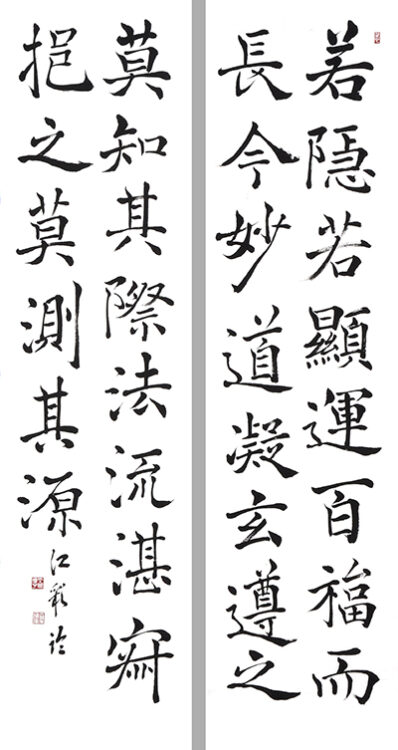 若隱若顯運百福而
長今妙道凝玄遵之
莫知其際法流湛寂
挹之莫測其源
江